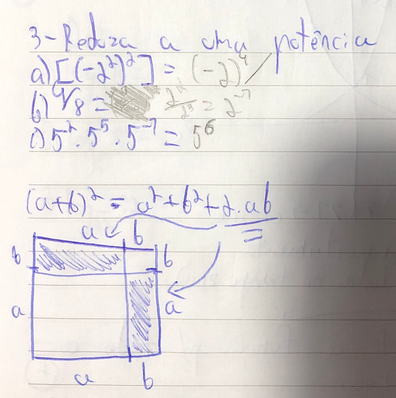 3-Reduza a uma potência
a) [(-2²)²] = (-2)⁴
b) = 2⁻⁷
c) 5² · 5⁵ · 5⁻⁷ = 5⁶
(a+b)² = a²+b²+2.ab
a b
b b
a a
a b